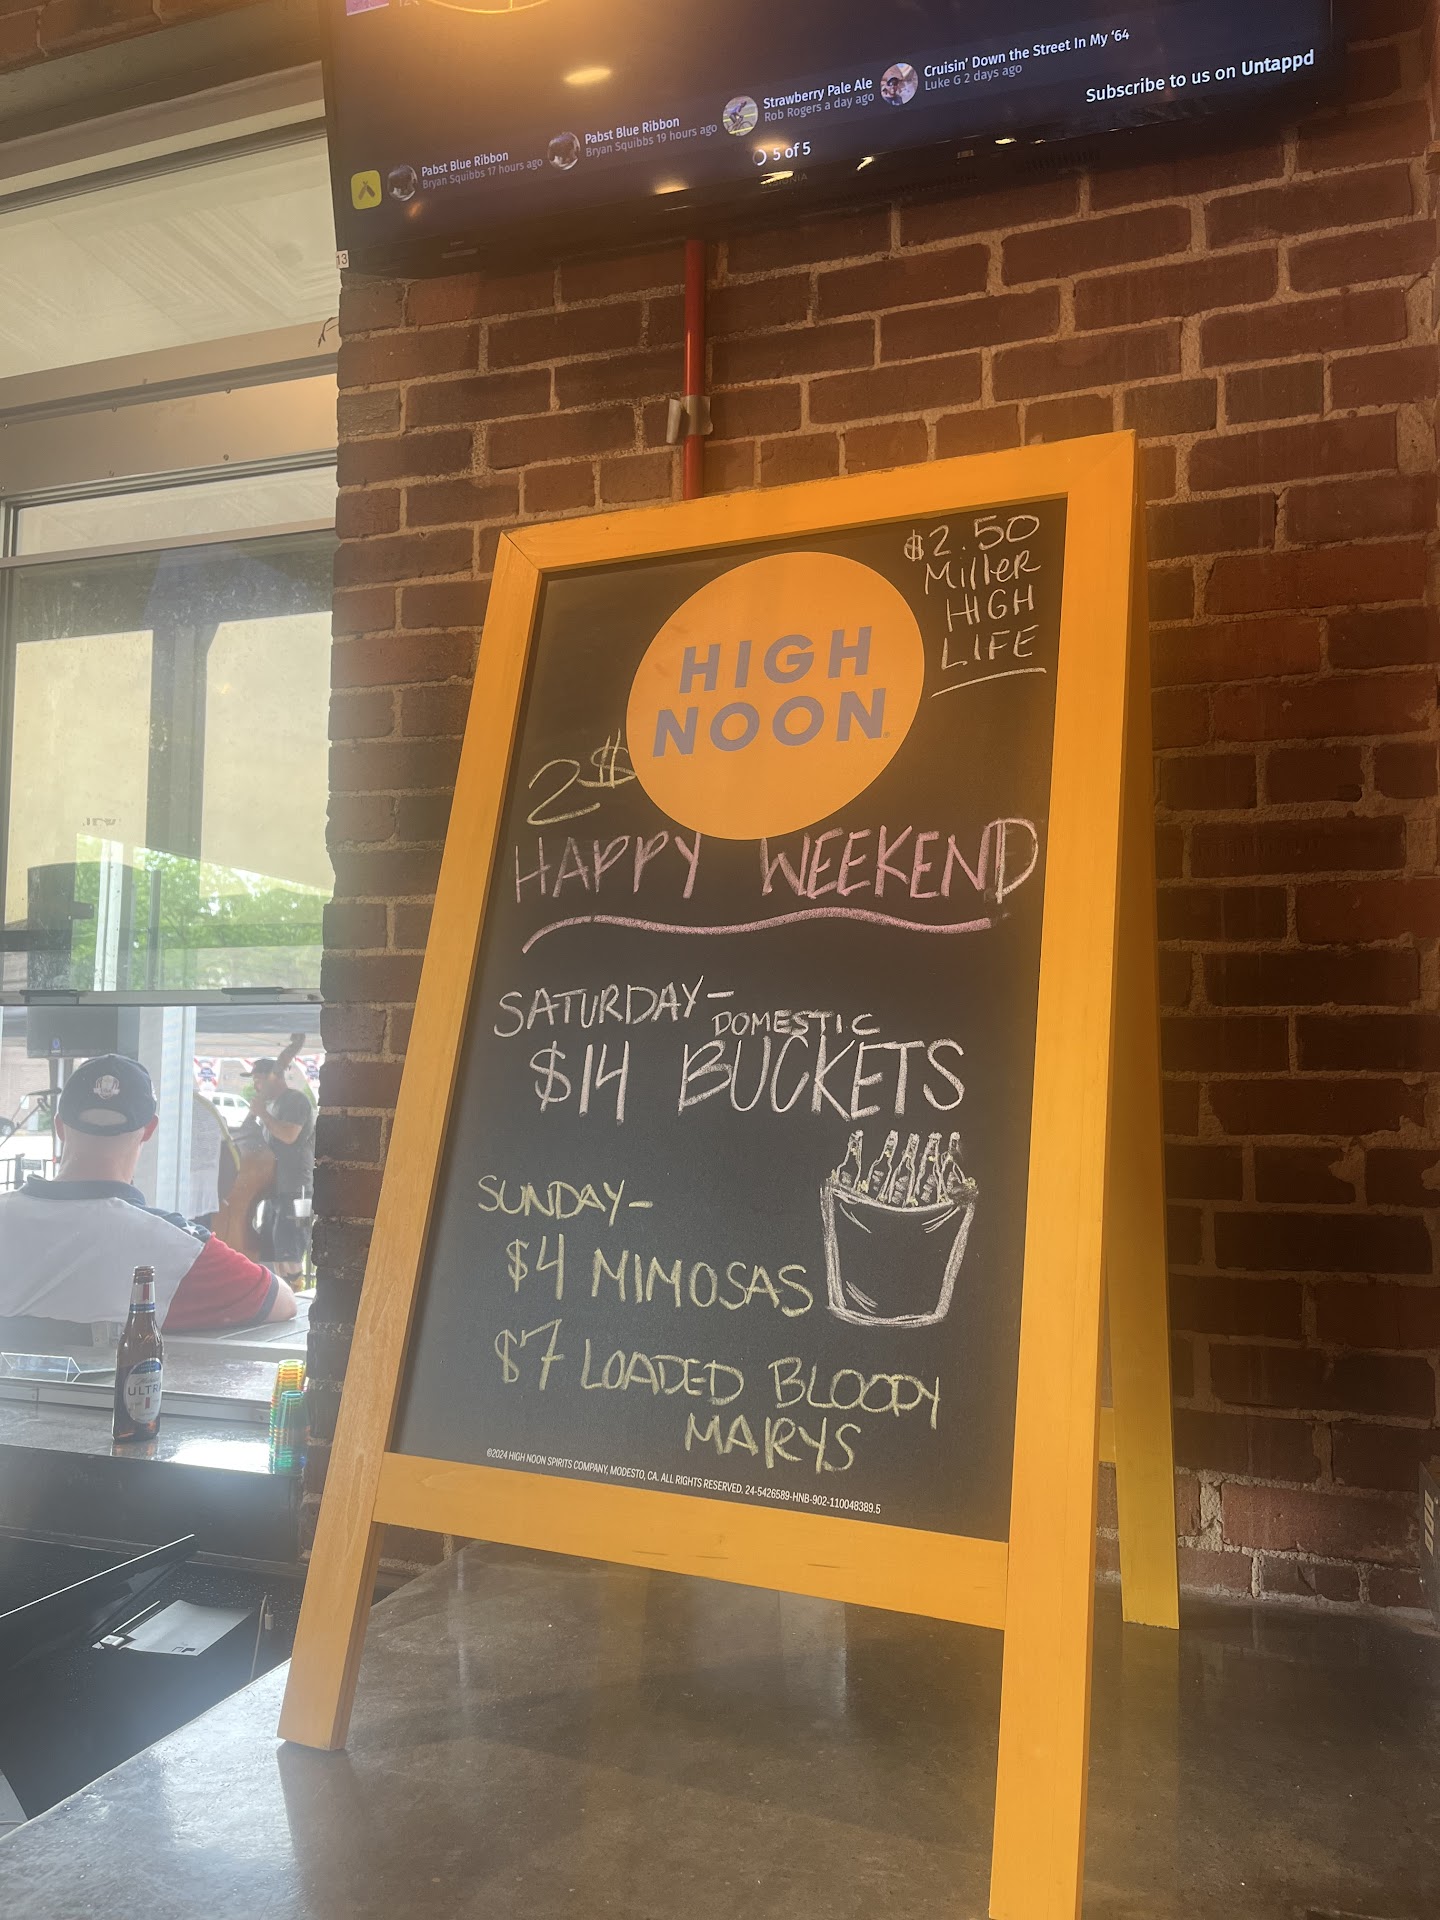 Pabst Blue Ribbon
Bryan Squibbs 17 hours ago
Pabst Blue Ribbon
Bryan Squibbs 19 hours ago
Strawberry Pale Ale
Rob Rogers a day ago
Cruisin' Down the Street In My '64
Luke G 2 days ago
5 of 5
Subscribe to us on Untappd
INSIGNIA
13
$2.50
Miller
HIGH
LIFE
HIGH
NOON
2$
HAPPY WEEKEND
SATURDAY-
DOMESTIC
$14 BUCKETS
SUNDAY-
$4 MIMOSAS
$7 LOADED BLOODY
MARYS
©2024 HIGH NOON SPIRITS COMPANY, MODESTO, CA. ALL RIGHTS RESERVED. 24-5426589-HNB-902-110048389.5
ULTRA